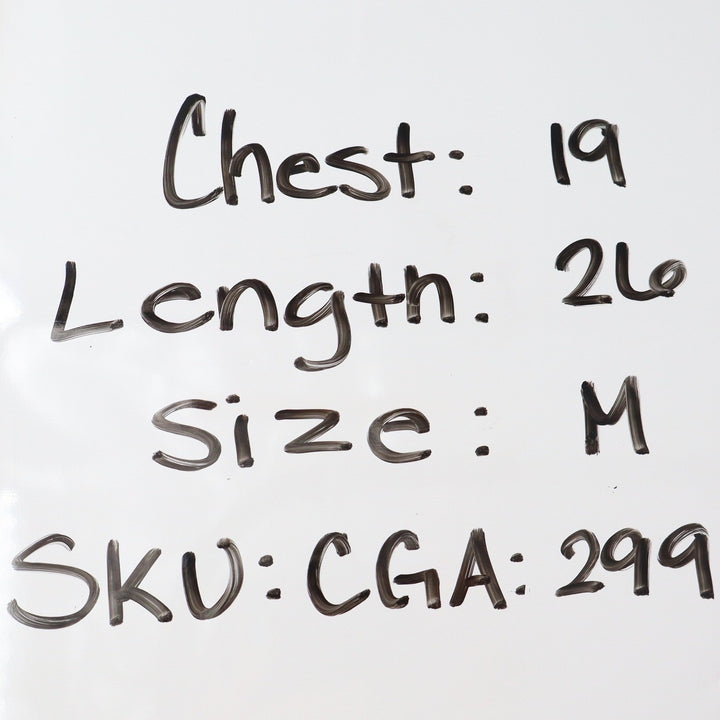 Chest: 19
Length: 26
Size: M
SKU: CGA: 299